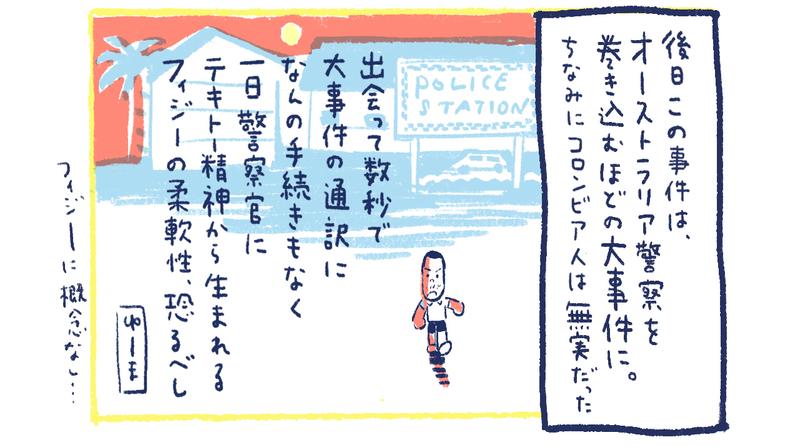 後日この事件は、
オーストラリア警察を
巻き込むほどの大事件に。
ちなみにコロンビア人は無実だった
POLICE
STATION
出会って数秒で
大事件の通訳に
なんの手続きもなく
一日警察官に
テキトー精神から生まれる
フィジーの柔軟性、恐るべし
ゆーま
フィジーに概念なし…